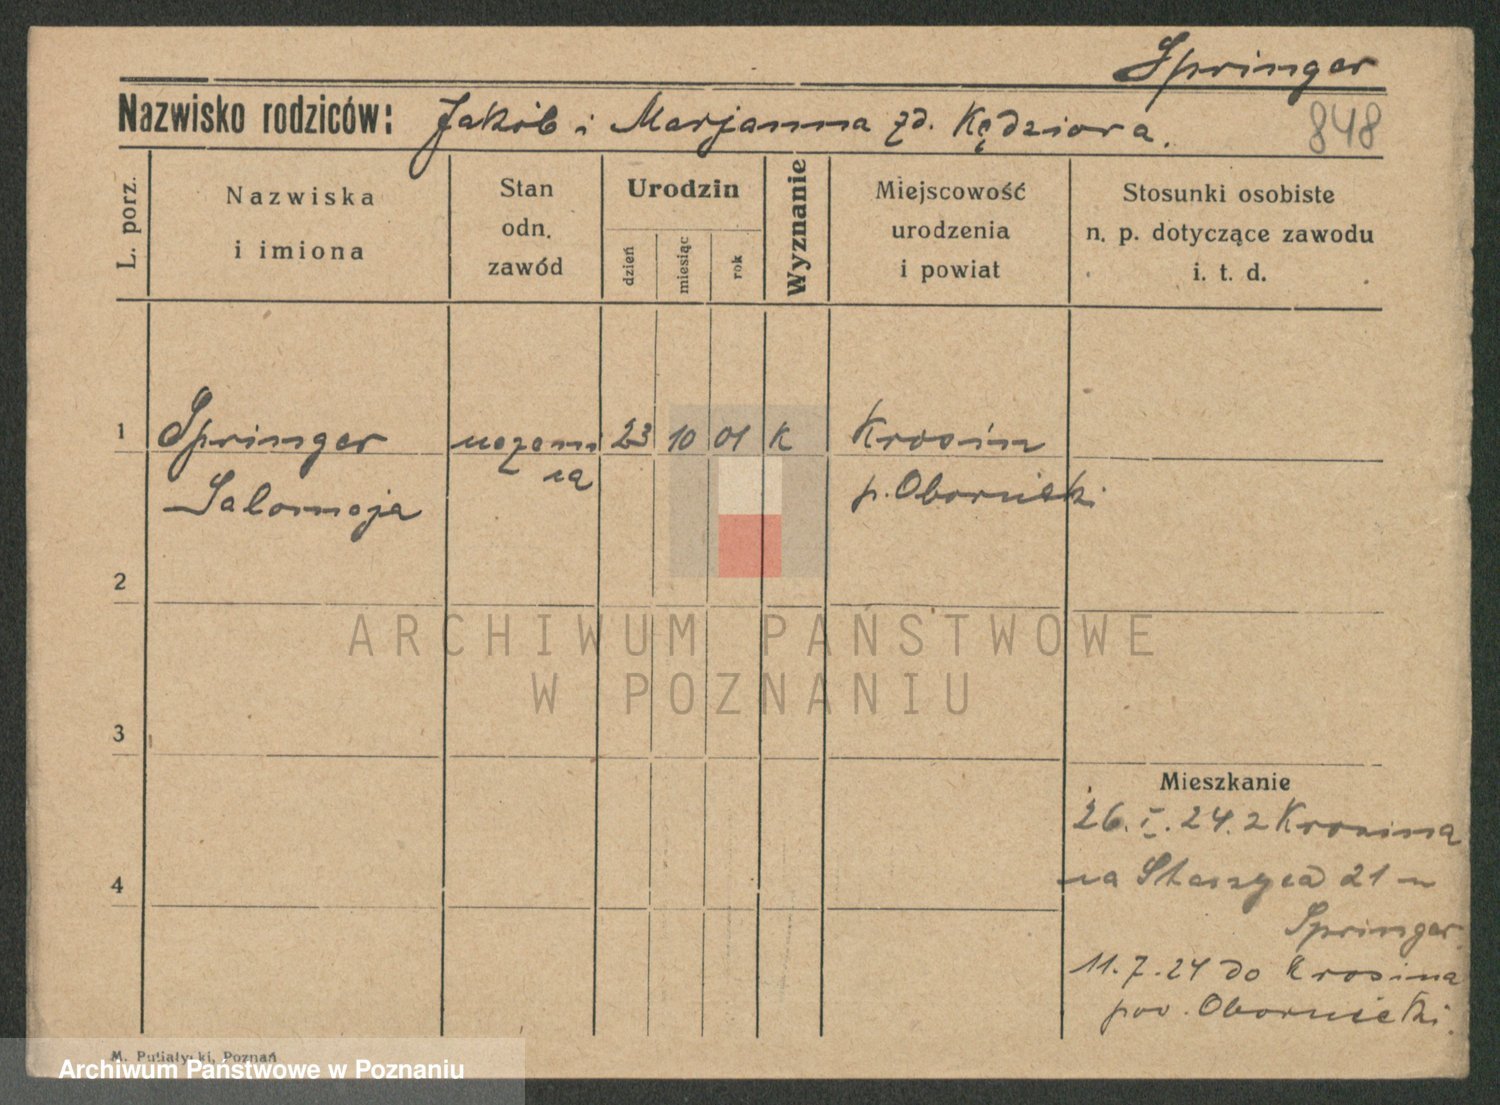 Springer
Nazwisko rodziców: Jakób i Marjanna zd. Kędziora.
848
L. porz.
Nazwiska
i imiona
Stan
odn.
zawód
Urodzin
dzień
miesiąc
rok
Wyznanie
Miejscowość
urodzenia
i powiat
Stosunki osobiste
n. p. dotyczące zawodu
i. t. d.
1
Springer
Salomeja
uczenni
ca
23
10
01
K
Krosin
p. Obornicki
2
ARCHIWUM PAŃSTWOWE
W POZNANIU
3
4
Mieszkanie
26. I. 24. z Krosina
na Staszyca 21 u
Springer.
11. 7. 24 do Krosina
pow. Obornicki.
M. Putiatycki, Poznań
Archiwum Państwowe w Poznaniu